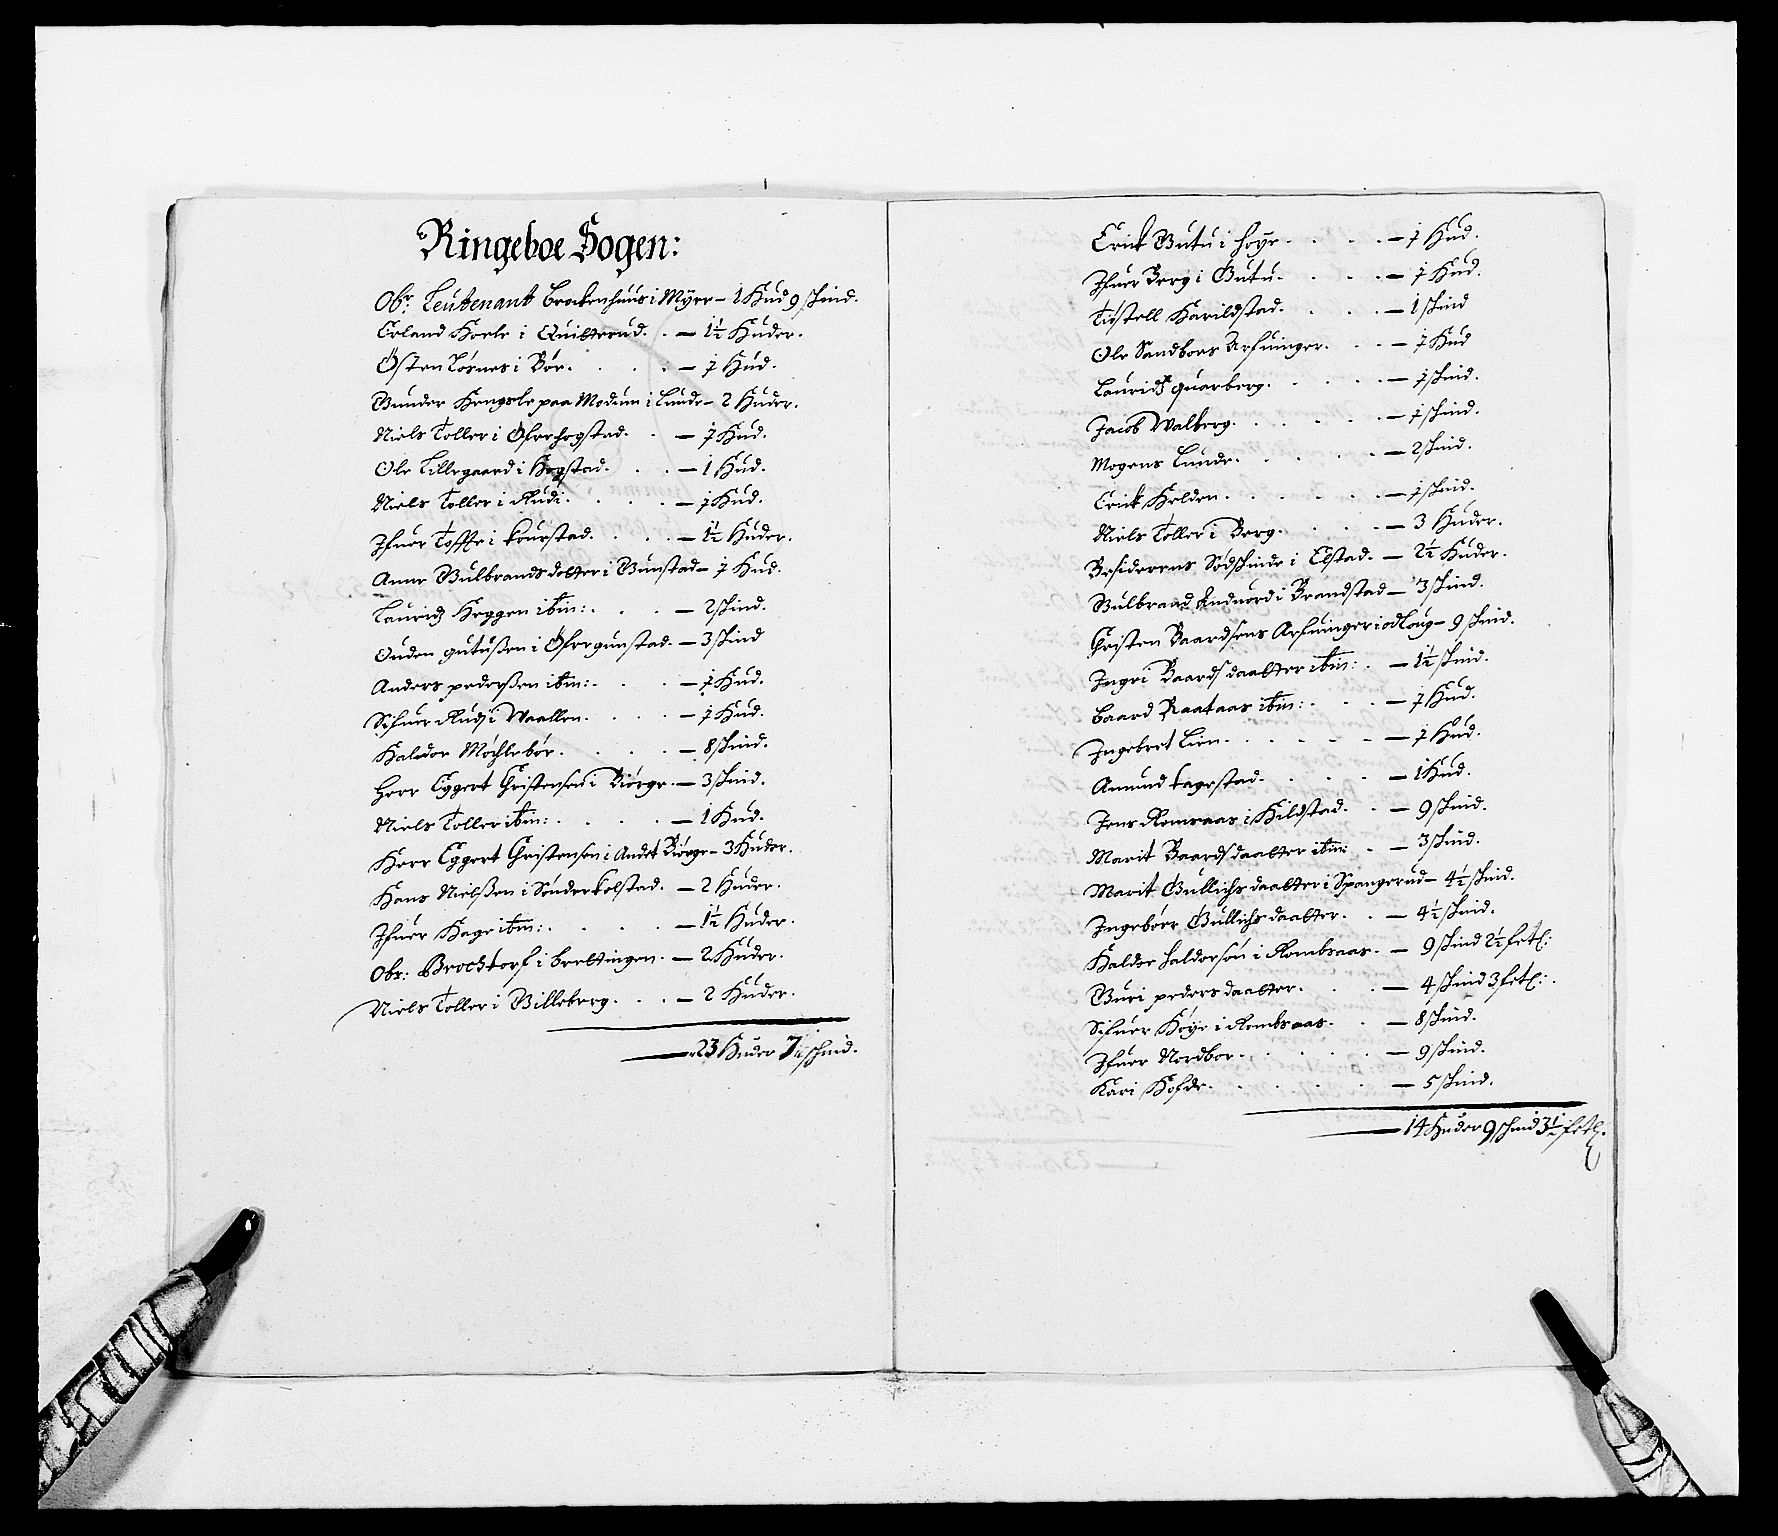 Ringeboe Sogen:
Obr: Leutenant Brockenhuus i Myre – 1 Hud 9 skind.
Erland Hoele i Quitterud. . – 1½ Huder.
Østen Løsnes i Bør. . . . . – j Hud.
Gunder Hengsle paa Modum i Lunde – 2 Huder.
Niels Toller i Øfrehogstad. . – j Hud.
Ole Lillegaard i Hogstad. . . – 1 Hud.
Niels Toller i Rudi. . . . – j Hud.
Ifuer Toffte i Kourstad. . . . – 1½ Huder.
Anne Gulbrands dotter i Gunstad – j Hud.
Lauridz Heggen ibm: . . . – 2 skind.
Ouden gutußen i Øfregunstad. – 3 skind
Anders pederßen ibm: . . . – j Hud.
Sifuer Rudj i Waallen. . . . – j Hud.
Haldor Møchlebør. . . . . – 8 skind.
Herr Eggert Christensen i Biørge. – 3 skind.
Niels Toller ibm: . . . . – 1 Hud.
Herr Eggert Christensen i Andet Biørge – 3 Huder.
Hans Nielßen i Sønderkolstad. – 2 Huder.
Ifuer Hage ibm: . . . . – 1½ Huder.
Obr: Brocktorf i brettingen. – 2 Huder.
Niels Toller i Billeberg. . . . – 2 Huder.
– 23 Huder 7½ schind.
Erick Gutu i høye. . . . . – j Hud.
Ifuer Berg i Gutu. . . . . – j Hud.
Tostell Harildstad. . . . . – 1 skind
Ole Sandboes Arfuinger. . . – j Hud
Lauridz quarberg. . . . . – j skind.
Jacob Walberg. . . . . . – j skind.
Mogens Lunde. . . . . . – 2 skind.
Erick Helden. . . . . . – j skind.
Niels Toller i Berg. . . . . – 3 Huder.
Residerens Sødskinde i Elstad. – 2½ Huder.
Gulbrand Anduord i Brandstad – 3 skind.
Christen Baardsens Arfuinger i odloug – 9 skind.
Ingri Baards daatter ibm: . – 1½ skind.
Baard Raataas ibm: . . . – j Hud.
Ingebret Lien. . . . . . – j Hud.
Amund Fagestad. . . . . – 1 Hud.
Jens Romsaas i Kildstad. . . – 9 skind.
Marit Baards daatter ibm: . – 3 skind.
Marit Gullichs daatter i Spangerud – 4½ skind.
Ingebøer Gullichs daatter. . – 4½ skind.
Haldor haldorsøn i Rombsaas. – 9 skind 2½ fetl:
Guri peders daatter. . . . – 4 skind 3 fetl:
Sifuer Høye i Rombsaas. . . – 8 skind.
Ifuer Nordbor. . . . . . – 9 skind.
Kari Hofde. . . . . . . – 5 skind.
– 14 Huder 9 schind 3½ fetl.